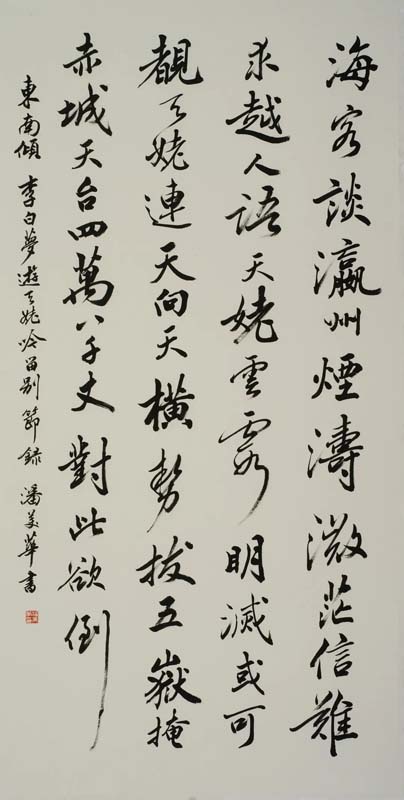 海客談瀛州煙濤微茫信難
求越人語天姥雲霞明滅或可
覩天姥連天向天橫勢拔五嶽掩
赤城天台四萬八千丈對此欲倒
東南傾 李白夢遊天姥吟留別節錄 潘美華書